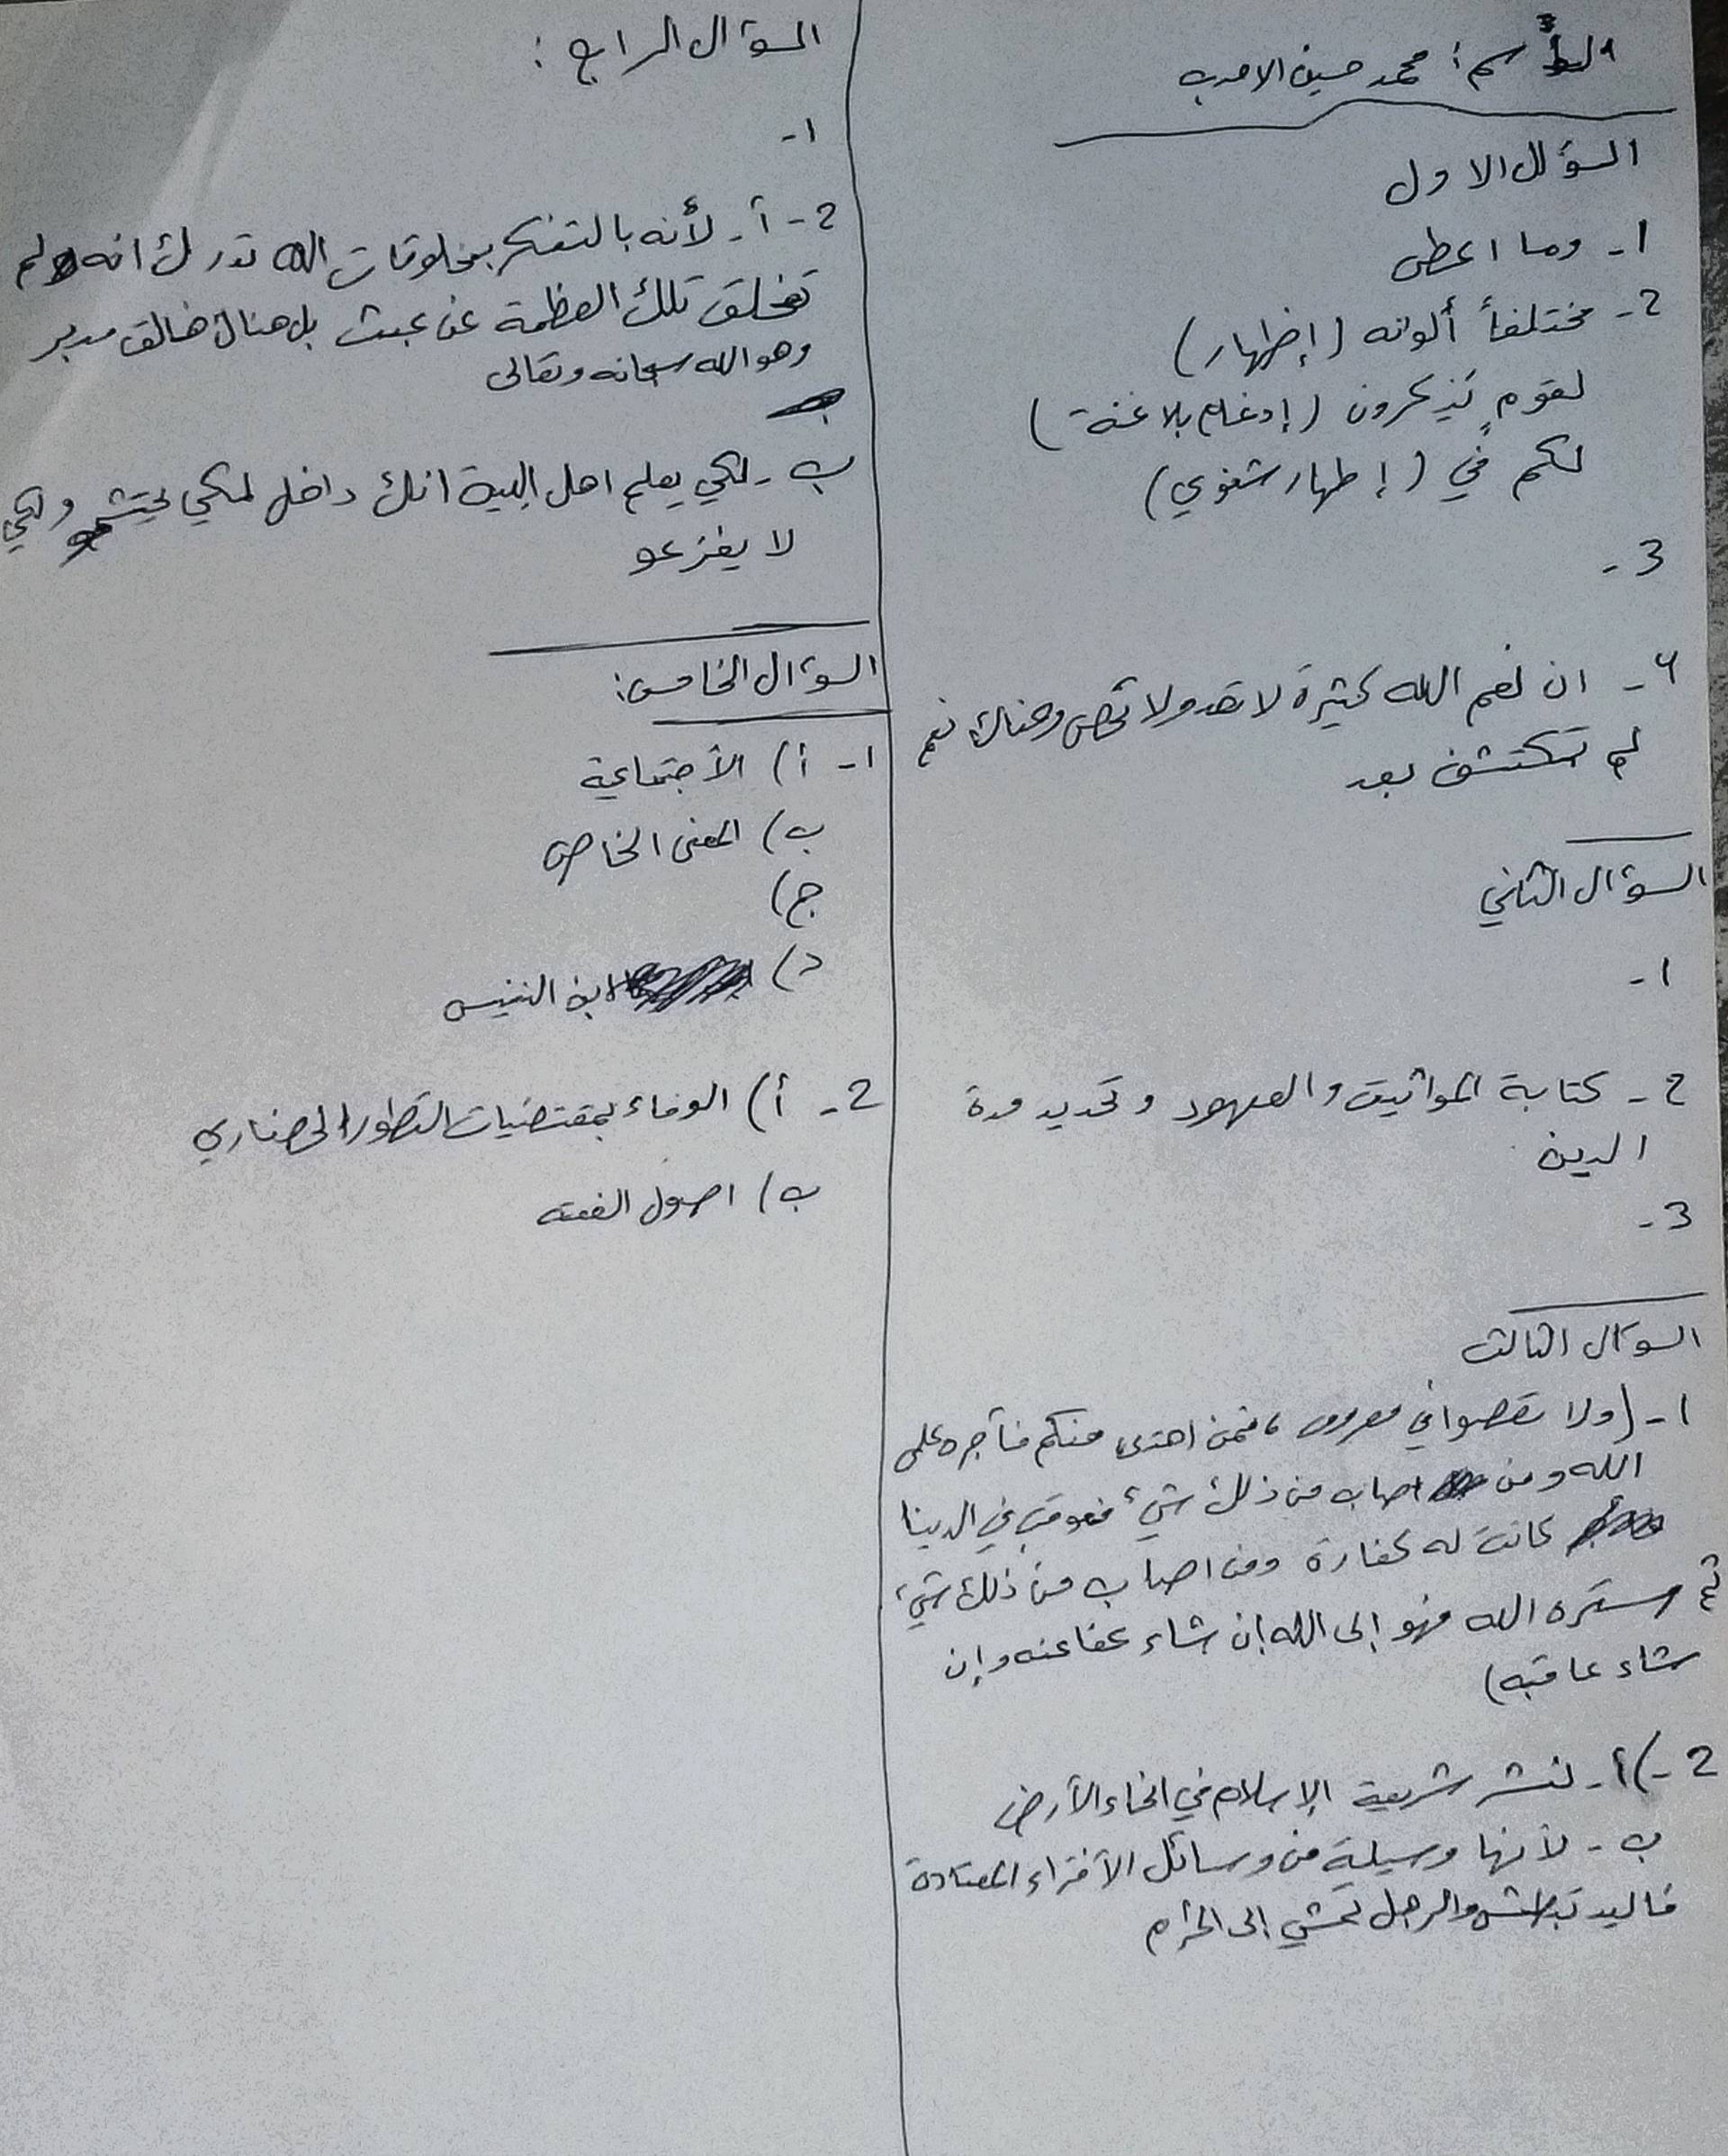 الاسم: محمد حسين الاحدب
السؤال الاول
1- وما اعطى
2- مختلفاً ألوانه (إظهار)
لقومٍ يَذكرون (إدغام بلا غنة)
لكم في (إظهار شفوي)
3-
4- ان نعم الله كثيرة لا تعد ولا تحصى وهناك نعم
لم تكتشف بعد
السؤال الثاني
1-
2- كتابة المواثيق والعهود وتحديد مدة
الدين
3-
السؤال الثالث
1- (ولا تعصوا في معروف، فمن اهتدى منكم فأجره على
الله ومن اصاب من ذلك شيء فعوقب في الدينا
كانت له كفارة ومن اصاب من ذلك شيء
ثم ستره الله فهو إلى الله إن شاء عفا عنه وإن
شاء عاقبه)
2-) أ- لنشر شريعة الإسلام في انحاء الأرض
ب- لأنها وسيلة من وسائل الأفتراء المعتادة
فاليد تبطش والرجل تمشي إلى الحرام
السؤال الرابع:
1-
2- أ- لأنه بالتفكر بمخلوقات الله تدرك انه لم
تخلق تلك العظمة عن عبث بل هناك خالق مدبر
وهو الله سبحانه وتعالى
ب- لكي يعلم اهل البيت انك داخل لكي ولكي
لا يفزعو
السؤال الخامس:
1- أ) الأجتماعية
ب) المعنى الخاص
ج)
د) ابن النفيس
2- أ) الوفاء بمقتضيات التطور الحضاري
ب) اصول الفقه